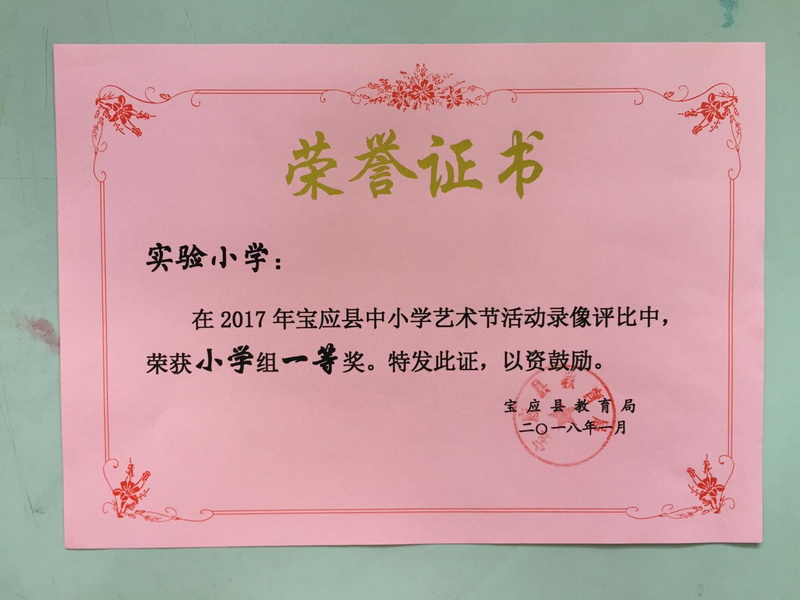 荣誉证书
实验小学：
在2017年宝应县中小学艺术节活动录像评比中，
荣获小学组一等奖。特发此证，以资鼓励。
宝应县教育局
二〇一八年一月